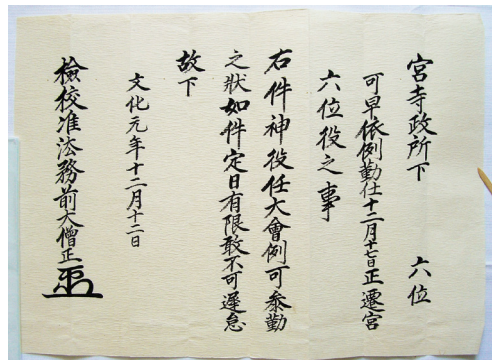 宮寺政所下　六位
可早依例勤仕十二月十七日正遷宮
六位役之事
右件神役任大會例可参勤
之狀如件定日有限敢不可遅怠
故下
文化元年十二月十二日
檢校准法務前大僧正